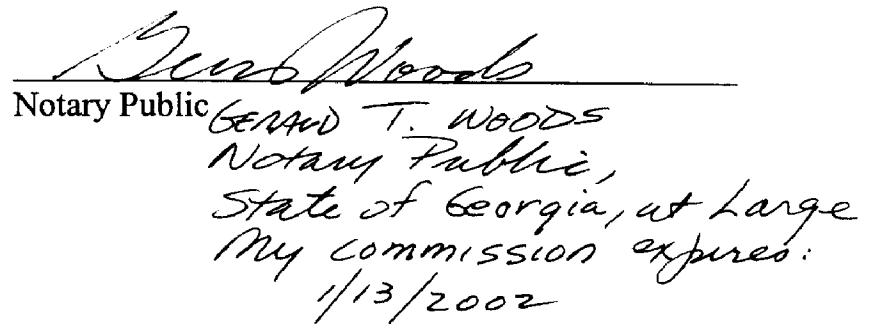 Woods
Notary Public
GERALD T. WOODS
Notary Public,
State of Georgia, at Large
My commission expires:
1/13/2002